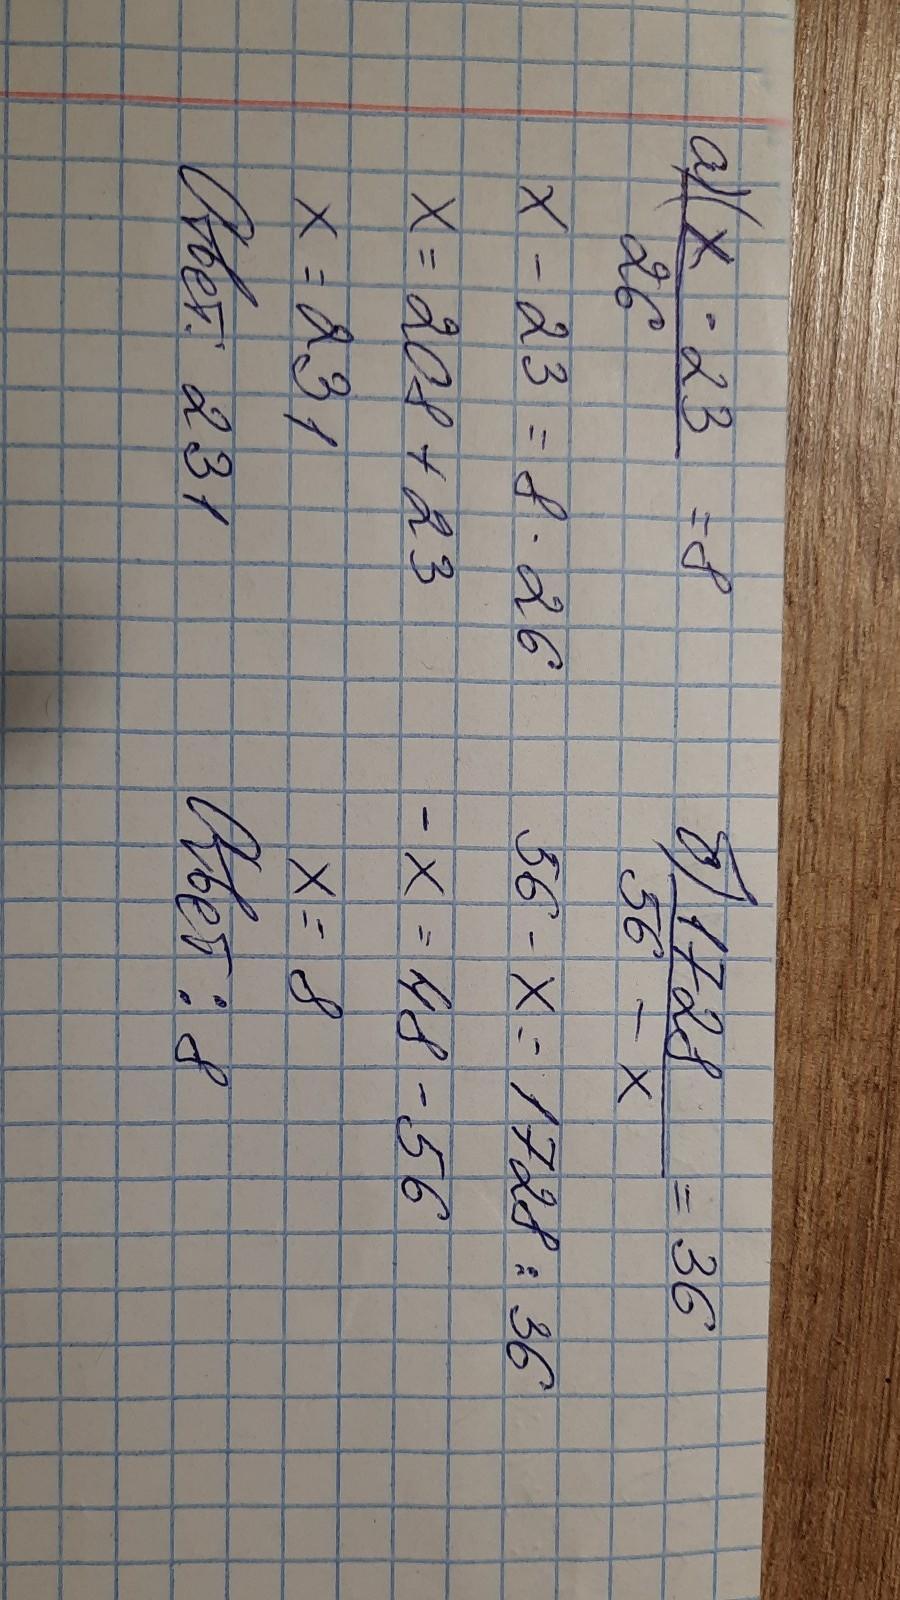 а) x - 23 = 8
26
x - 23 = 8 · 26
x = 208 + 23
x = 231
Ответ: 231
б) 1728 = 36
56 - x
56 - x = 1728 : 36
- x = 48 - 56
x = 8
Ответ: 8